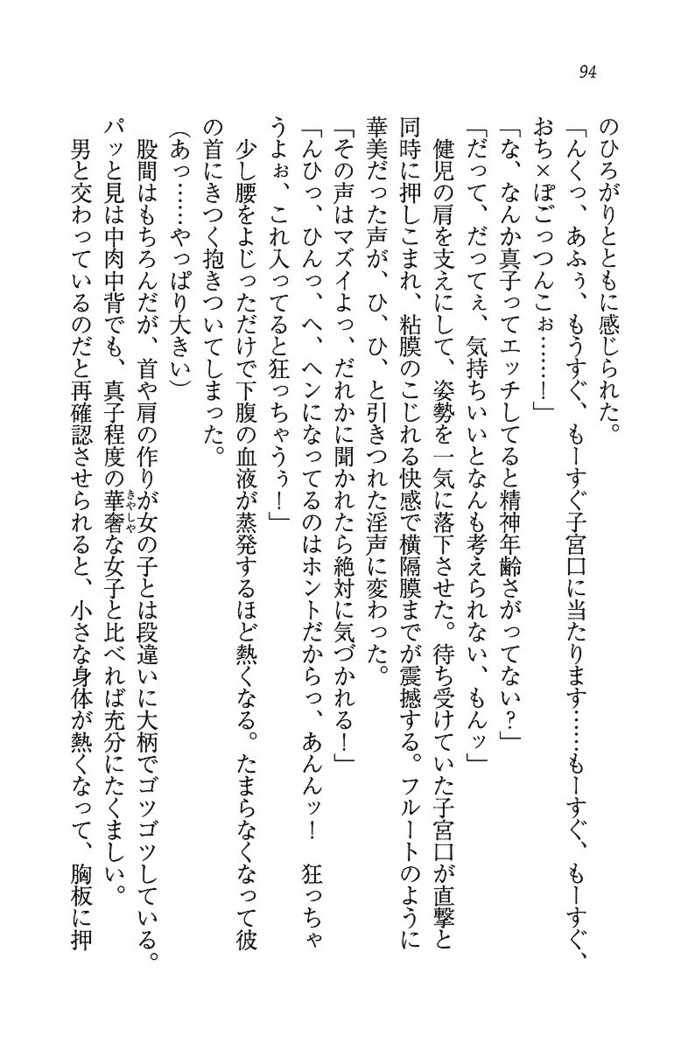 94
のひろがりとともに感じられた。
「んくっ、あふぅ、もうすぐ、もーすぐ子宮口に当たります……もーすぐ、もーすぐ、
おち×ぽごっつんこぉ……！」
「な、なんか真子ってエッチしてると精神年齢さがってない？」
「だって、だってぇ、気持ちいいとなんも考えられない、もんッ」
健児の肩を支えにして、姿勢を一気に落下させた。待ち受けていた子宮口が直撃と
同時に押しこまれ、粘膜のこじれる快感で横隔膜までが震撼する。フルートのように
華美だった声が、ひ、ひ、と引きつれた淫声に変わった。
「その声はマズイよっ、だれかに聞かれたら絶対に気づかれる！」
「んひっ、ひんっ、へ、ヘンになってるのはホントだからっ、あんんッ！　狂っちゃ
うよぉ、これ入ってると狂っちゃうぅ！」
少し腰をよじっただけで下腹の血液が蒸発するほど熱くなる。たまらなくなって彼
の首にきつく抱きついてしまった。
（あっ……やっぱり大きい）
股間はもちろんだが、首や肩の作りが女の子とは段違いに大柄でゴツゴツしている。
パッと見は中肉中背でも、真子程度の華奢きゃしゃな女子と比べれば充分にたくましい。
男と交わっているのだと再確認させられると、小さな身体が熱くなって、胸板に押